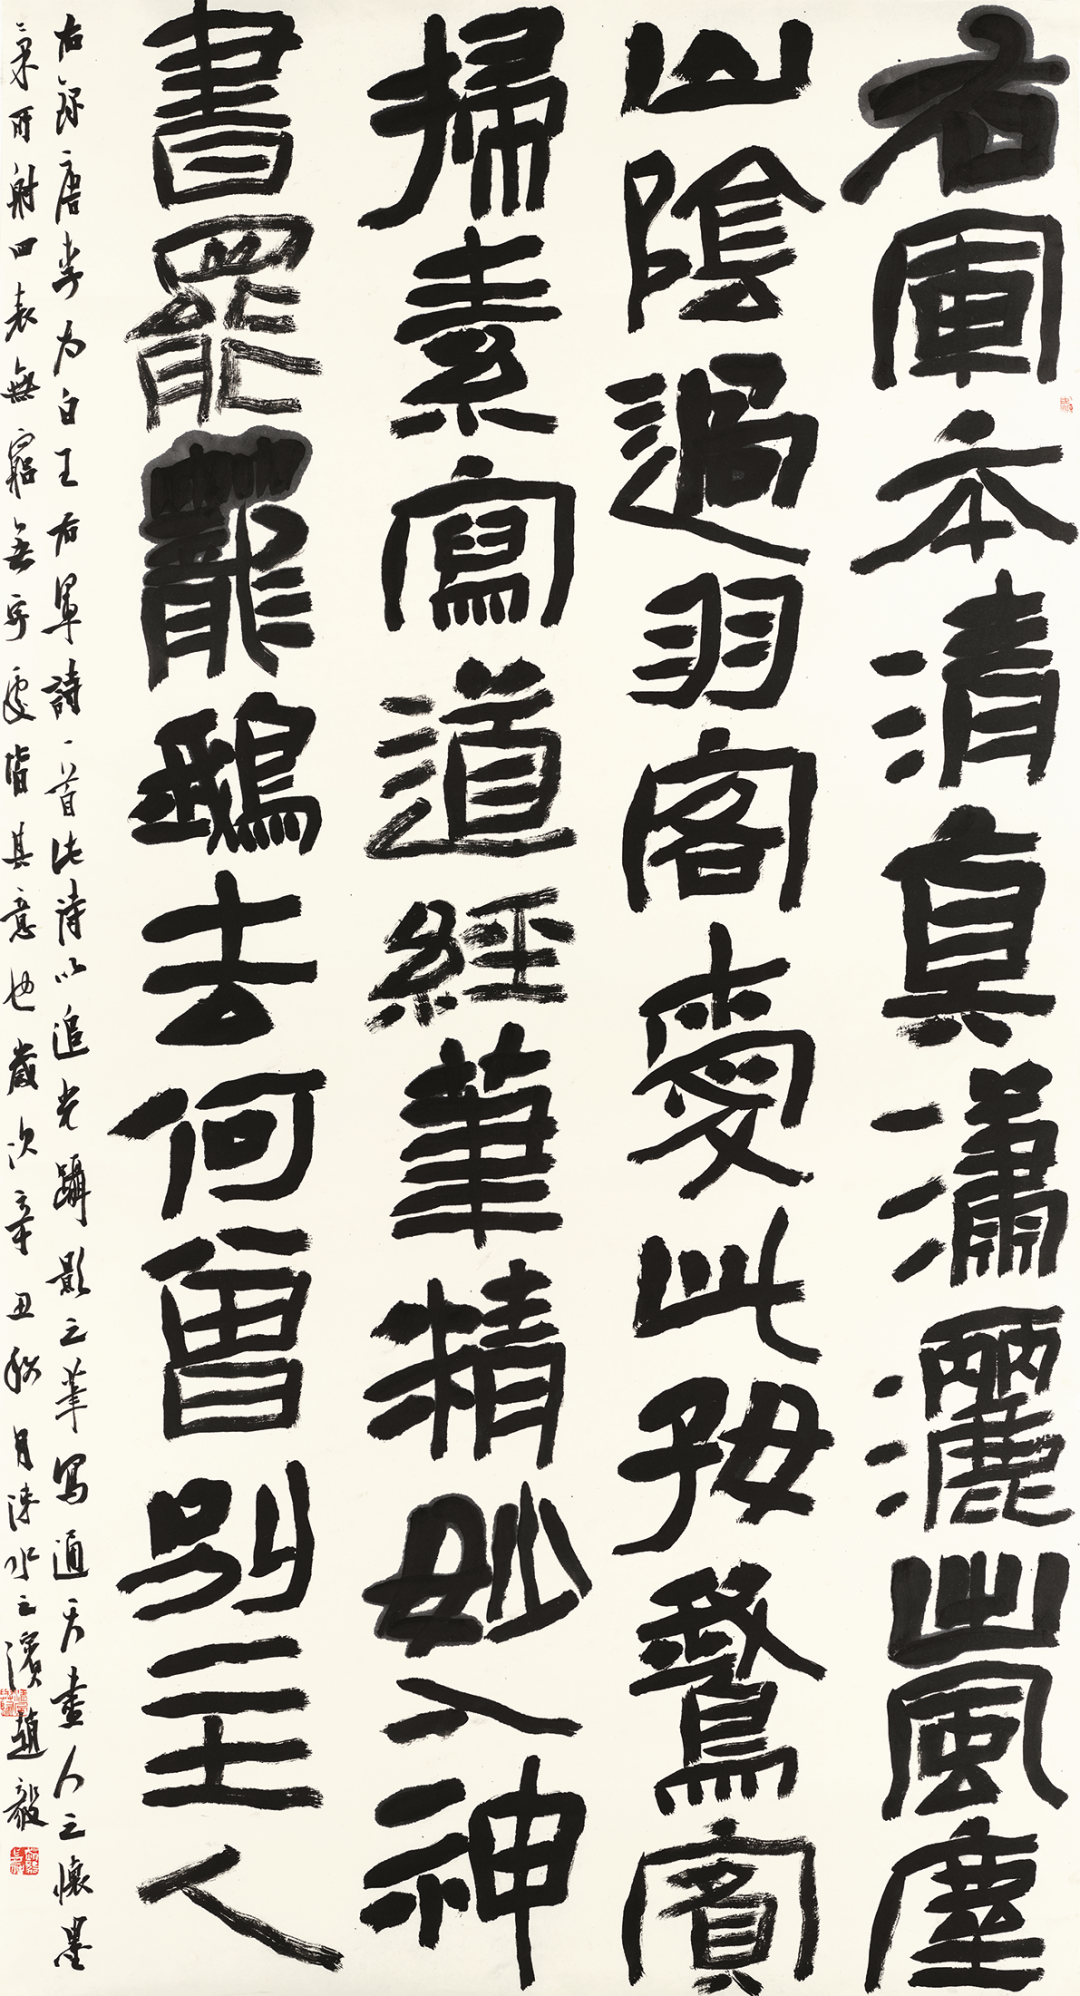 右軍本清真瀟灑出風塵
山陰過羽客愛此好鵞賓
掃素寫道經筆精妙入神
書罷籠鵝去何曾別主人
右錄唐李太白王右軍詩一首此詩以追光躡影之筆寫通天盡人之懷墨
氣所射四表無窮無字處皆其意也歲次辛丑秋月涑水之濱趙毅